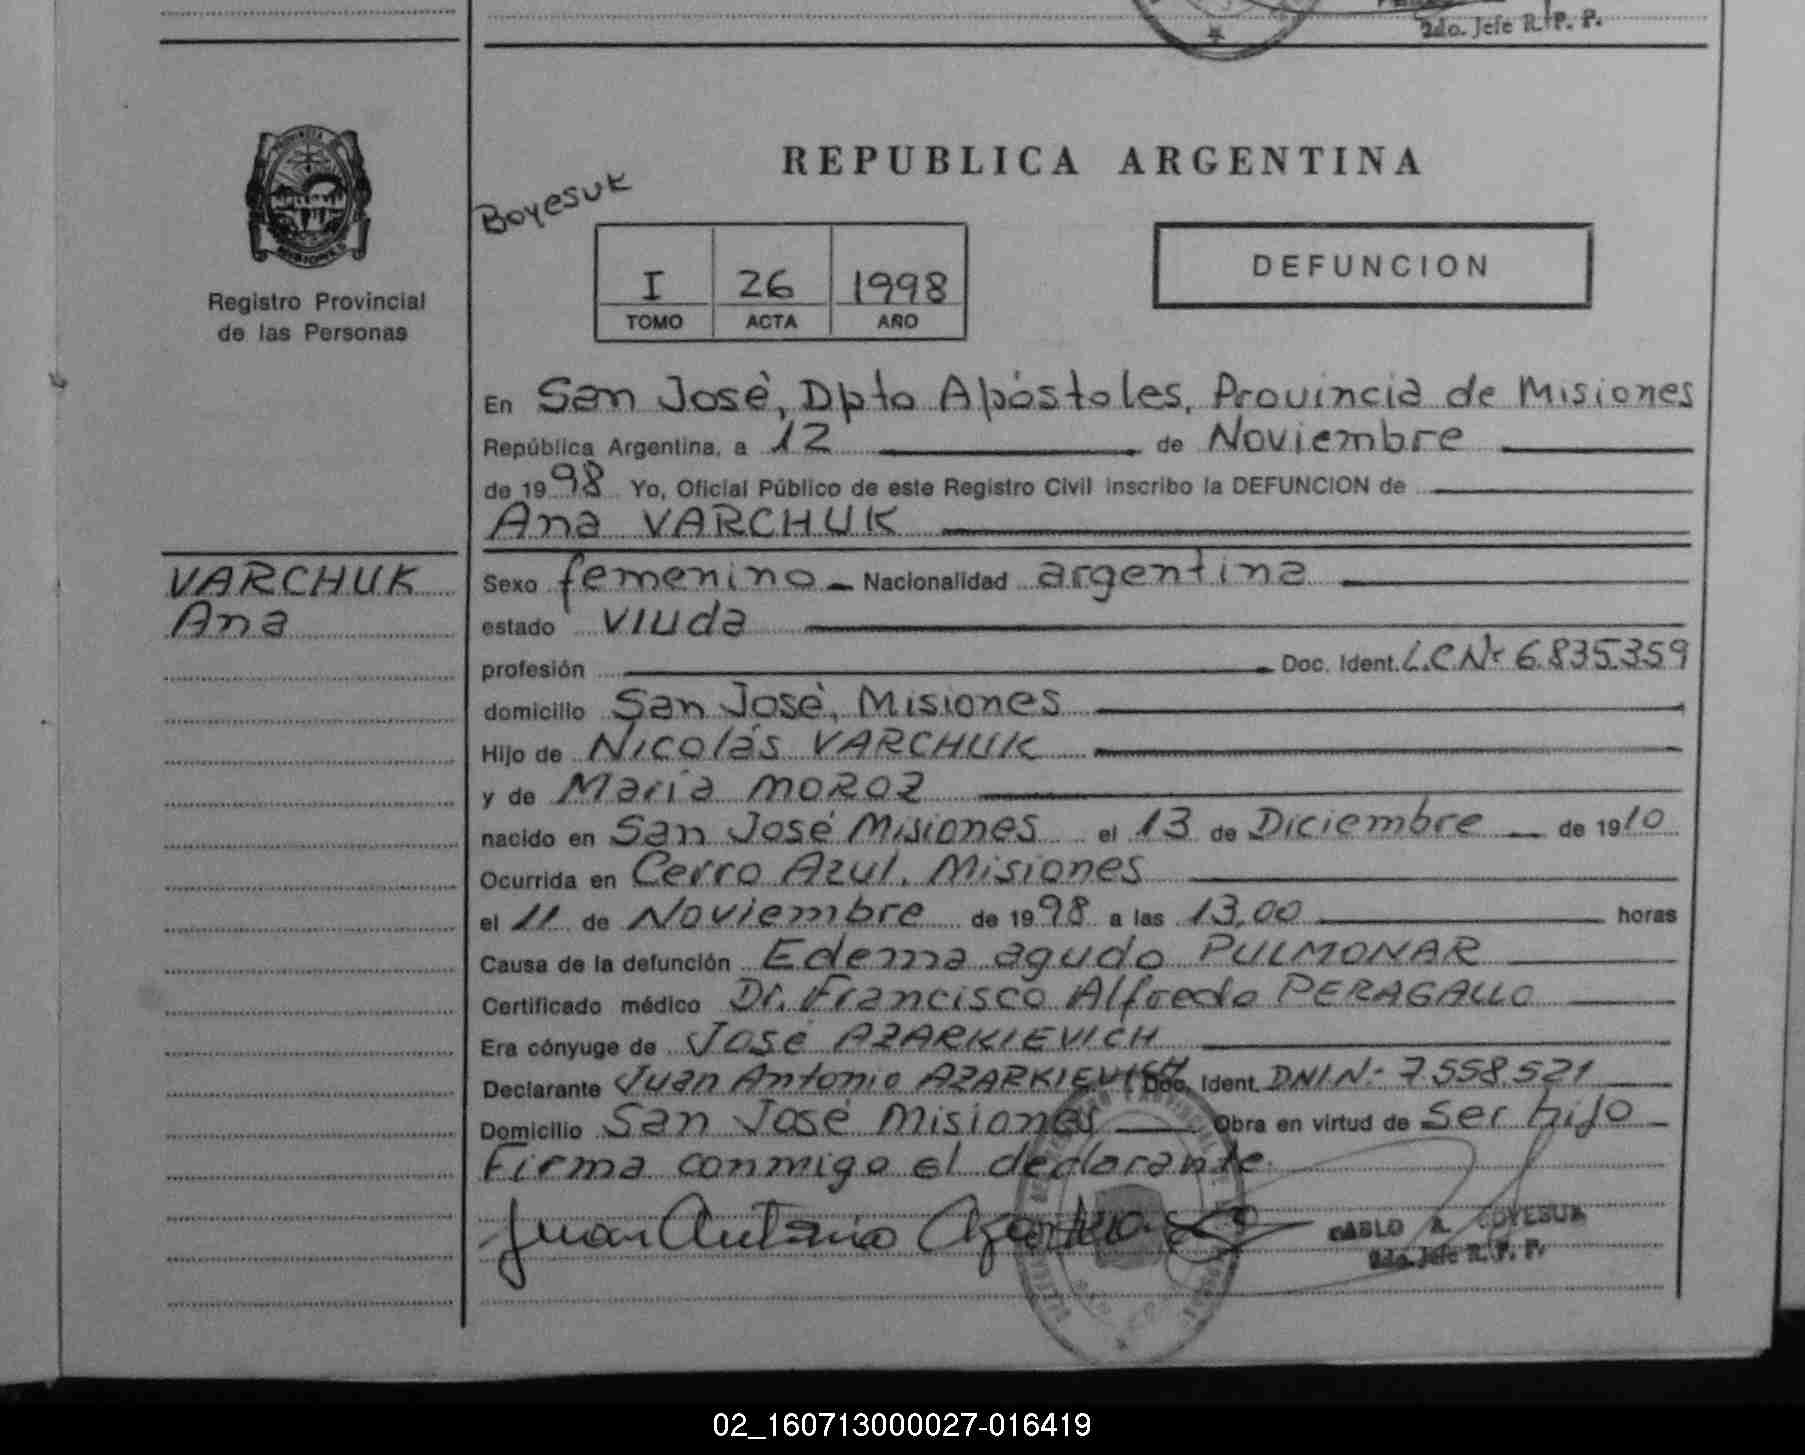 2do. Jefe R. P. P.
REPUBLICA ARGENTINA
Boyesuk
I 26 1998
TOMO ACTA AÑO
DEFUNCION
Registro Provincial
de las Personas
En San José, Dpto Apóstoles, Provincia de Misiones
República Argentina, a 12 de Noviembre
de 1998 Yo, Oficial Público de este Registro Civil inscribo la DEFUNCION de
Ana VARCHUK
VARCHUK
Ana
Sexo femenino Nacionalidad argentina
estado viuda
profesión Doc. Ident. L.C.Nº 6.835.359
domicilio San José, Misiones
Hijo de Nicolás VARCHUK
y de María MOROZ
nacido en San José Misiones el 13 de Diciembre de 1910
Ocurrida en Cerro Azul, Misiones
el 11 de Noviembre de 1998 a las 13,00 horas
Causa de la defunción Edema agudo PULMONAR
Certificado médico Dr. Francisco Alfredo PERAGALLO
Era cónyuge de José AZARKIEVICH
Declarante Juan Antonio AZARKIEVICH Doc. Ident. DNI N- 7.558.521
Domicilio San José Misiones Obra en virtud de Ser hijo
Firma conmigo el declarante.
Juan Antonio
PABLO A.
2do. Jefe R. P. P.
02_160713000027-016419